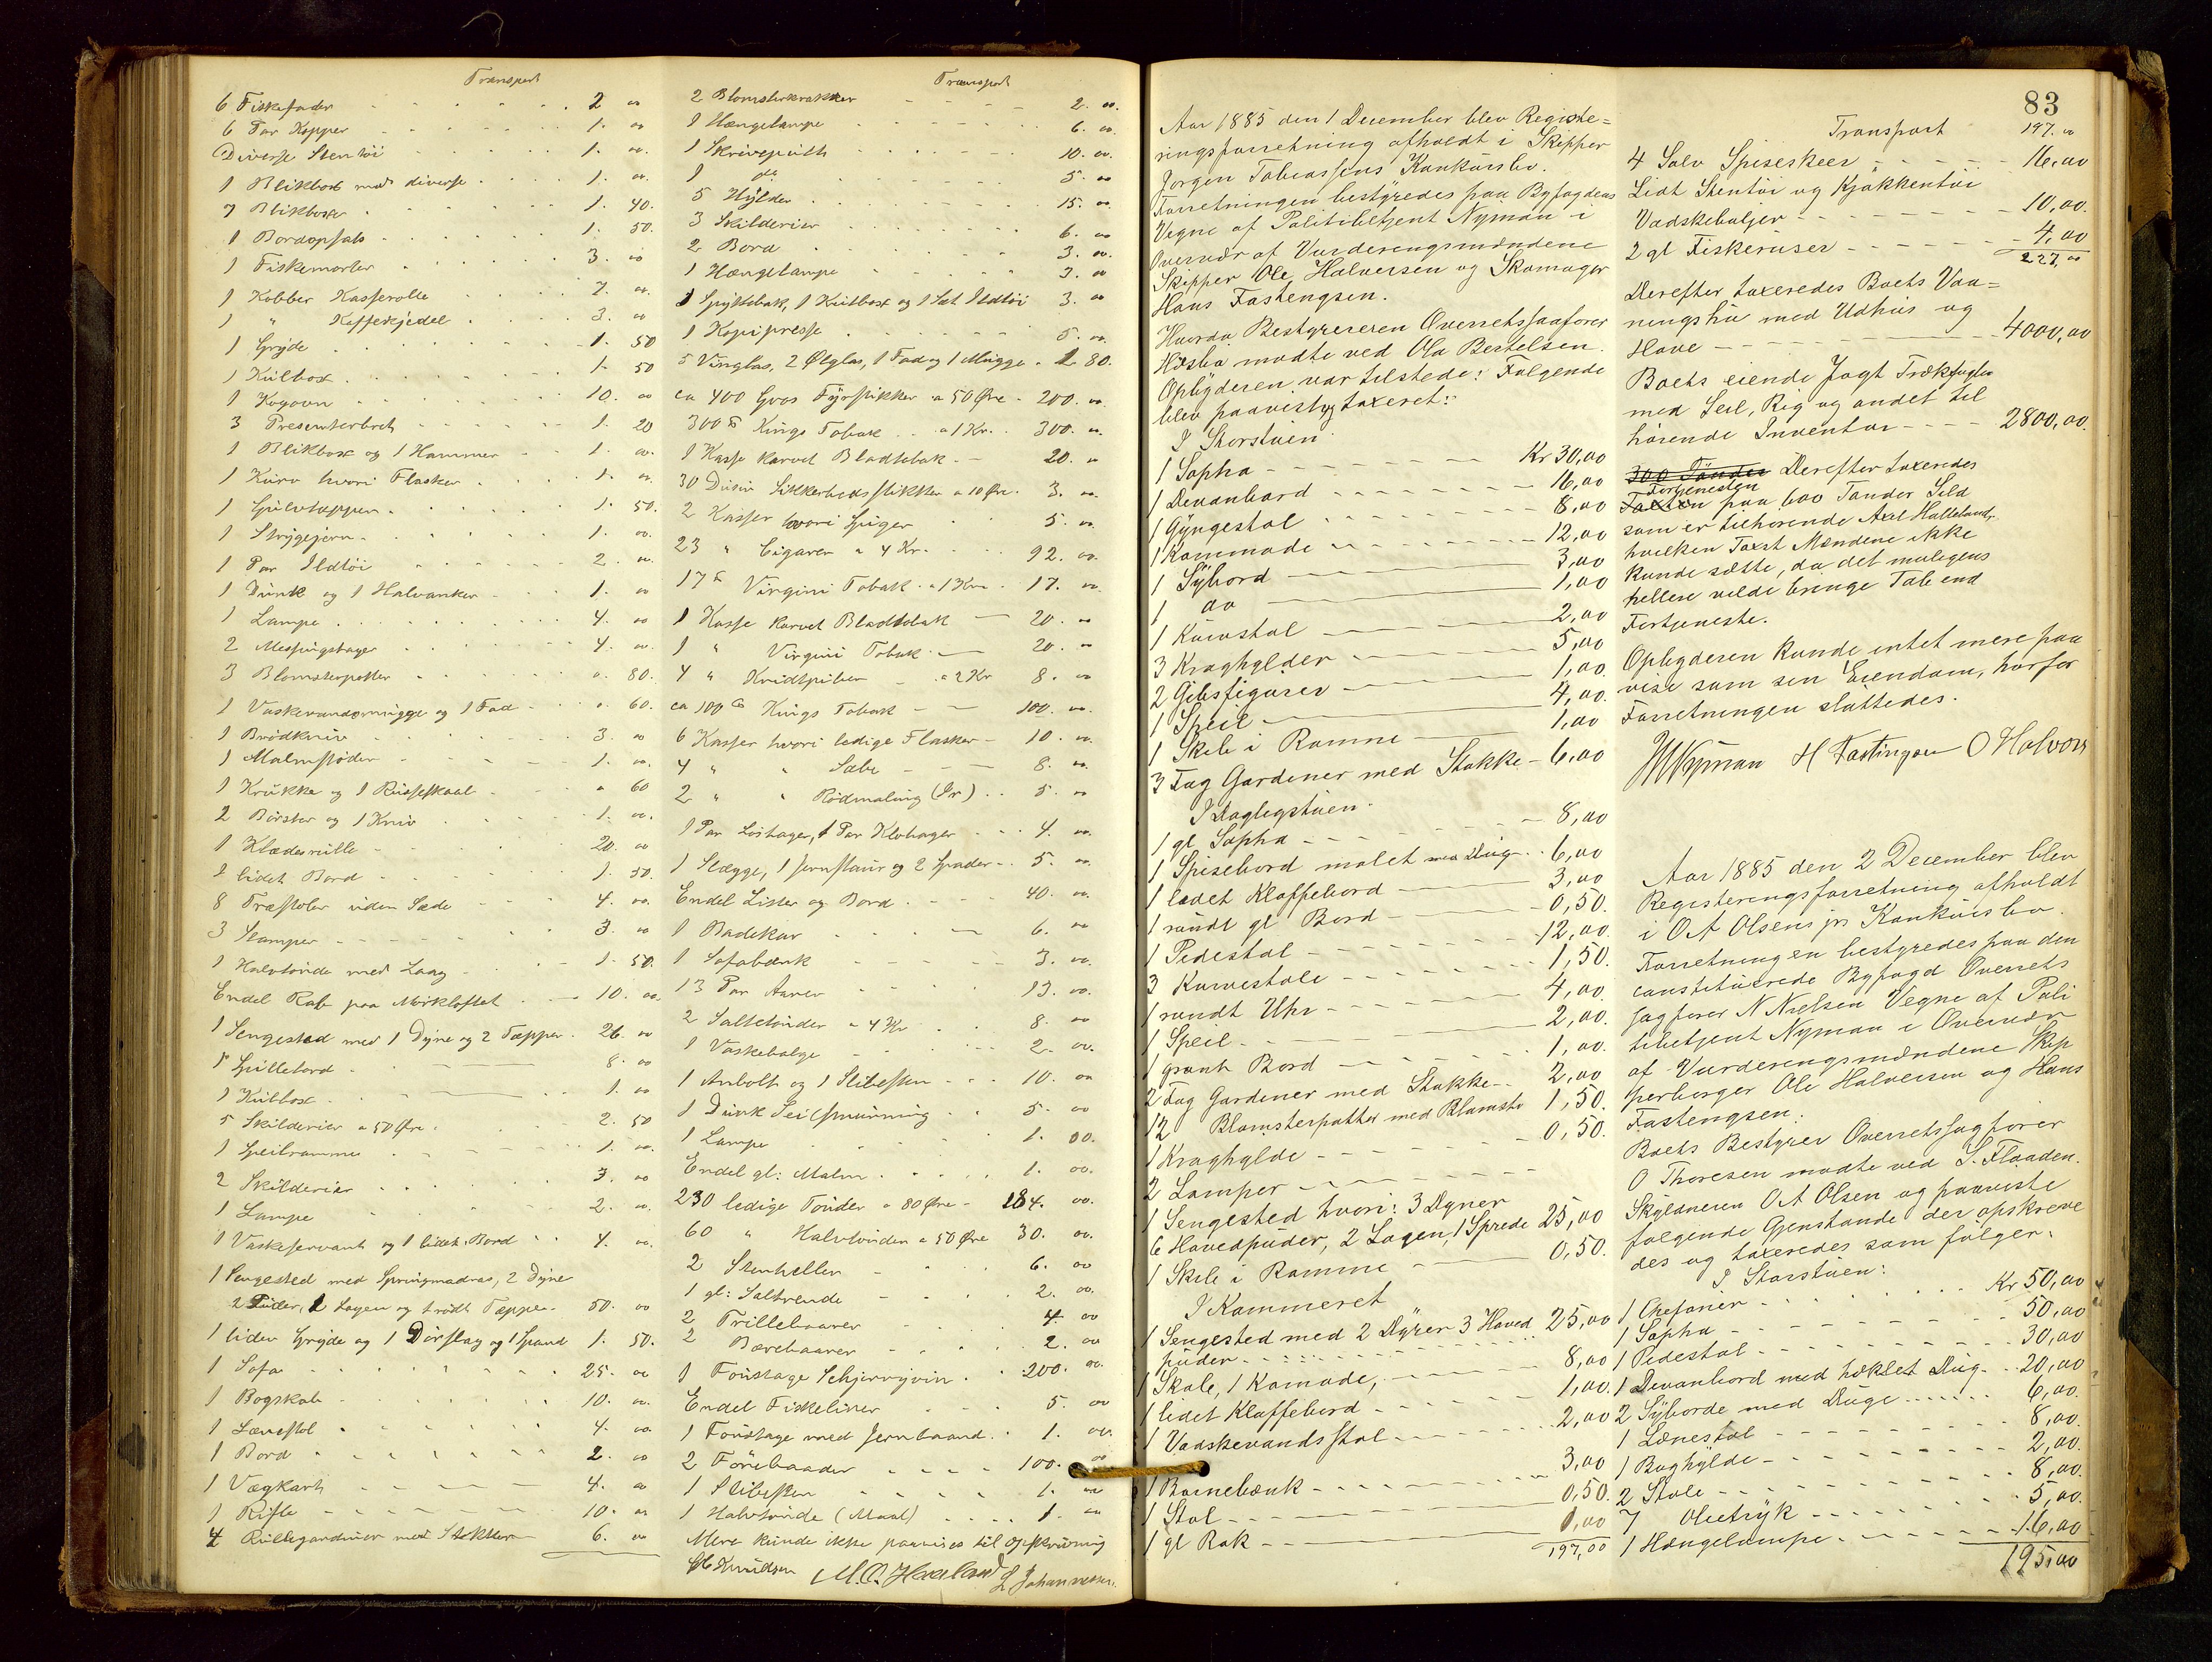 Transport
6 Fiskefader 2 00
6 Par Kopper 1. 00
Diverse Stentöi 1. 00.
1 Blikbox med diverse 1. 00.
7 Blikboxe 1. 40.
1 Bordopsats 1. 50.
1 Fiskemorter 3. 00
1 Kobber Kasserolle 7. 00.
1 " Kaffekjedel 3. 00
1 Gryde 1. 50
1 Kulbox 1. 50
1 Kogovn 10. 00
3 Presenterbret 1. 20
1 Blikbox og 1 Hammer 1. 00.
1 Kurv hvori Flasker 1. 00.
1 Gulvtæppe 1. 50.
1 Strygejern 1. 00.
1 Par Ildtöi 2. 00.
1 Dunk og 1 Halvanker 1. 00
1 Lampe 4. 00
2 Messingstager 4. 00.
3 Blomsterpotter 0. 80.
1 Vaskevandsmugge og 1 Fad 0. 60.
1 Brödkniv 3. 00
1 Malmstöder 1. 00.
1 Krukke og 1 Rüseskaal " 60
2 Börster og 1 Kniv 1. 00.
1 Klæderulle 20. 00
1 lidet Bord 1. 50.
8 Træstoler uden Sæde 4. 00.
3 Stamper 3. 00
1 Halvtönde med Laag 1. 50.
Endel Rab paa Mörkloftet 10. 00.
1 Sengested med 1 Dyne og 2 Tæpper 26. 00
1 Spillebord 8. 00
1 Kulbox 1. 00
5 Skilderier a 50 Öre 2. 50
1 Speilramme 1. 00.
2 Skilderier 3. 00
1 Lampe 2. 00.
1 Vaskeservant og 1 lidet Bord 4. 00.
1 Sengested med Springmadras, 2 Dyne
2 Puder, 2 Lagen og 1 rödt Tæppe 50. 00
1 liden Gryde og 1 Dörslag og 1 Spand 1. 50.
1 Sofa 25. 00
1 Bogskab 10. 00.
1 Lænestol 4. 00.
1 Bord 2. 00
1 Vægkart 4. 00
1 Rifle 10. 00
4 Rullegardiner med Stokker 6. 00
Transport
2 Blomsterkrakker 2. 00.
1 Hængelampe 6. 00.
1 Skrivepult 10. 00.
1 do 5. 00
5 Hylder 15. 00.
3 Skilderier 6. 00
2 Bord 3. 00.
1 Hængelampe 3. 00
1 Spyttebak, 1 Kulbox og 1 Sæt Ildtöi 3. 00
1 Kopipresse 5. 00.
5 Vinglas, 2 Ölglas, 1 Fad og 1 Mugge 1. 80.
ca 400 Gros Fyrstikker a 50 Öre 200. 00.
300 ℔ Kings Tobak a 1 Kr. 300. 00.
1 Kasse karvet Bladtobak 20. 00
30 Dusin Sikkerhedsstikker a 10 Öre 3. 00.
2 Kasser hvori Spiger 5. 00.
23 " Cigarer a 4 Kr. 92. 00.
17 ℔ Virgini Tobak a 1 Kr 17. 00.
1 Kasse karvet Bladtobak 20. 00
1 " Virgini Tobak 20. 00
4 " Kridtpiber a 2 Kr 8. 00
ca 100 ℔ Kings Tobak 100. 00.
6 Kasser hvori ledige Flasker 10. 00.
4 " " Sæbe 8. 00.
2 " " Rödmaling (Dr) 5. 00
1 Par Listager, 1 Par Klotager 4. 00.
1 Slægge, 1 Jernstaur og 2 Spader 5. 00.
Endel Lister og Bord 40. 00.
1 Badekar 6. 00
1 Sofabænk 3. 00.
13 Par Aarer 13. 00.
2 Saltetönder a 4 Kr 8. 00
1 Vaskebalge 2. 00.
1 Anbolt og 1 Slibesten 10. 00
1 Dunk Seilsmurning 5. 00
1 Lampe 1. 00.
Endel gl: Malm 1. 00.
230 ledige Tönder a 80 Öre 184. 00.
60 " Halvtönder a 50 Öre 30. 00.
2 Stenheller 6. 00
1 gl: Saltrende 2. 00.
2 Trillebaarer 4 00
2 Bærebaarer 2. 00
1 Foustage Schjerryvin 200. 00.
Endel Fiskeliner 5. 00
1 Foustage med Jernbaand 1. 00.
2 Förebaader 100. 00
1 Slibesten 1. 00
1 Halvtönde (Maal) 1. 00
Mere kunde ikke paavises til Opskrivning
Chr Knudsen M. O. Haaland L Johannessen.
Aar 1885 den 1 December blev Registe=
ringsforretning afholdt i Skipper
Jørgen Tobiassens Konkursbo.
Forretningen bestyredes paa Byfogdens
Vegne af Politibetjent Nyman i
Overvær af Vurderingsmændene
Skipper Ole Halversen og Skomager
Hans Fastengsen.
Hvorda Bestyreren Overretssagfører
Husbø mødte ved Ola Bertelsen.
Opbyderen var tilstede: Følgende
blev paavist og taxeret:
I Storstuen
1 Sopha Kr 30,00
1 Devanbord 16,00
1 Gyngestol 8,00
1 Kommode 12,00
1 Sybord 3,00
1 do 1,00
1 Kurvstol 2,00
3 Kraghylder 5,00
2 Gibsfigurer 1,00
1 Speil 4,00
1 Skib i Ramme 1,00
3 Fag Gardiner med Stokke 6,00
I Dagligstuen
1 gl Sopha 8,00
1 Spisebord malet med Dug 6,00
1 lidet Klaffebord 3,00
1 rundt gl Bord 0,50.
1 Pidestal 12,00.
3 Kurvestole 1,50.
1 rundt Uhr 4,00.
1 Speil 2,00.
1 grønt Bord 1,00.
2 Fag Gardiner med Stokke 2,00
12 Blomsterpotter med Blomster 1,50.
1 Kraghylde 0,50.
2 Lamper
1 Sengested hvori: 3 Dyner
6 Hovedpuder, 2 Lagen, 1 Sprede 25,00
1 Skib i Ramme 0,50.
I Kammeret
1 Sengested med 2 Dyner 3 Hoved 25,00
puder
1 Skab, 1 Komode, 8,00
1 lidet Klaffebord 1,00.
1 Vadskevandsstol 2,00
1 Barnebænk 3,00
1 Stol 0,50.
1 gl Rok 1,00
197,00
83
Transport 197.00
4 Sølv Spiseskeer 16,00
Lidt Stentöi og Kjøkkentöi
Vadskebaljer 10,00.
2 gl Fiskeruser 4,00
227,00
Derefter taxeredes Boets Vaa=
ningshus med Udhus og
Have 4000,00
Boets eiende Jagt Trækfuglen
med Seil, Rig og andet til
hørende Inventar 2800,00.
300 Tønder Derefter taxeredes
Fortjenesten
paa 600 Tønder Sild
som er tilhørende Axel Halleland,
hvilken Taxst Mændene ikke
kunde sætte, da det muligens
hellere vilde bringe Tab end
Fortjeneste.
Opbyderen kunde intet mere paa
vise som sin Eiendom, hvorfor
Forretningen sluttedes.
Nyman H Fastingsen O Halvors
Aar 1885 den 2 December blev
Registeringsforretning afholdt
i O A Olsens jrs Konkursbo.
Forretningen bestyredes paa den
constituerede Byfogd Overrets
sagfører N Nielsen Vegne af Poli
tibetjent Nyman i Overvær
af Vurderingsmændene Skip
perborger Ole Halversen og Hans
Fastengsen.
Boets Bestyrer Overretssagfører
O Thoresen mødte ved S. Flaaden.
Skyldneren O A Olsen og paaviste
følgende Gjenstande der opskreve
des og taxeredes som følger.
I Storstuen:
1 Chefonier Kr 50,00
1 Sopha 50,00
1 Pidestal 30,00
1 Devanbord med hæklet Dug 20,00
2 Syborde med Duge 6,00.
1 Lænestol 8,00.
1 Boghylde 2,00.
2 Stole 8,00.
7 Olietryk 5,00.
1 Hængelampe 16,00
195,00